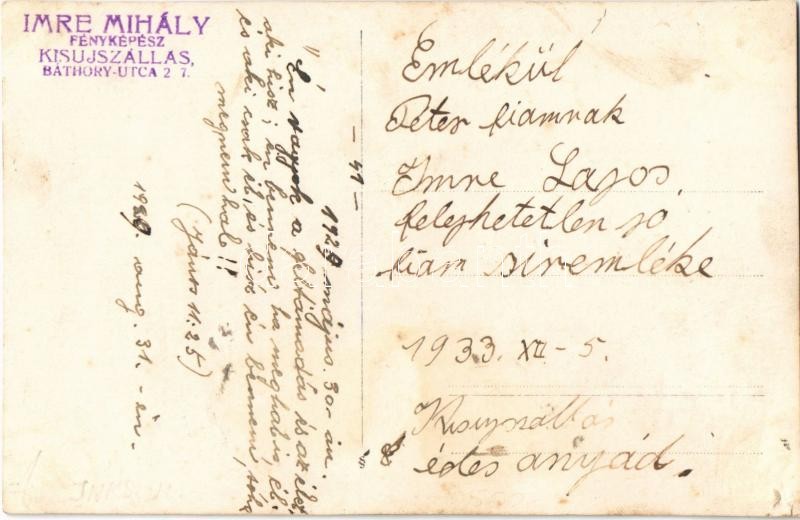 IMRE MIHÁLY
FÉNYKÉPÉSZ
KISUJSZÁLLÁS,
BÁTHORY-UTCA 27.
Emlékül
Péter fiamnak
Imre Lajos,
felejhetetlen jó
fiam siremléke
1933. XII - 5.
Kisujszállás
édes anyád.
- 41 -
1929 május. 30-án.
"Én vagyok a feltámadás és az élet
aki hisz; én bennem, ha meghal is, él:
és aki csak él, és hisz én bennem, soha
meg nem hal"!!
(János 11:25)
aug. 31.-én.